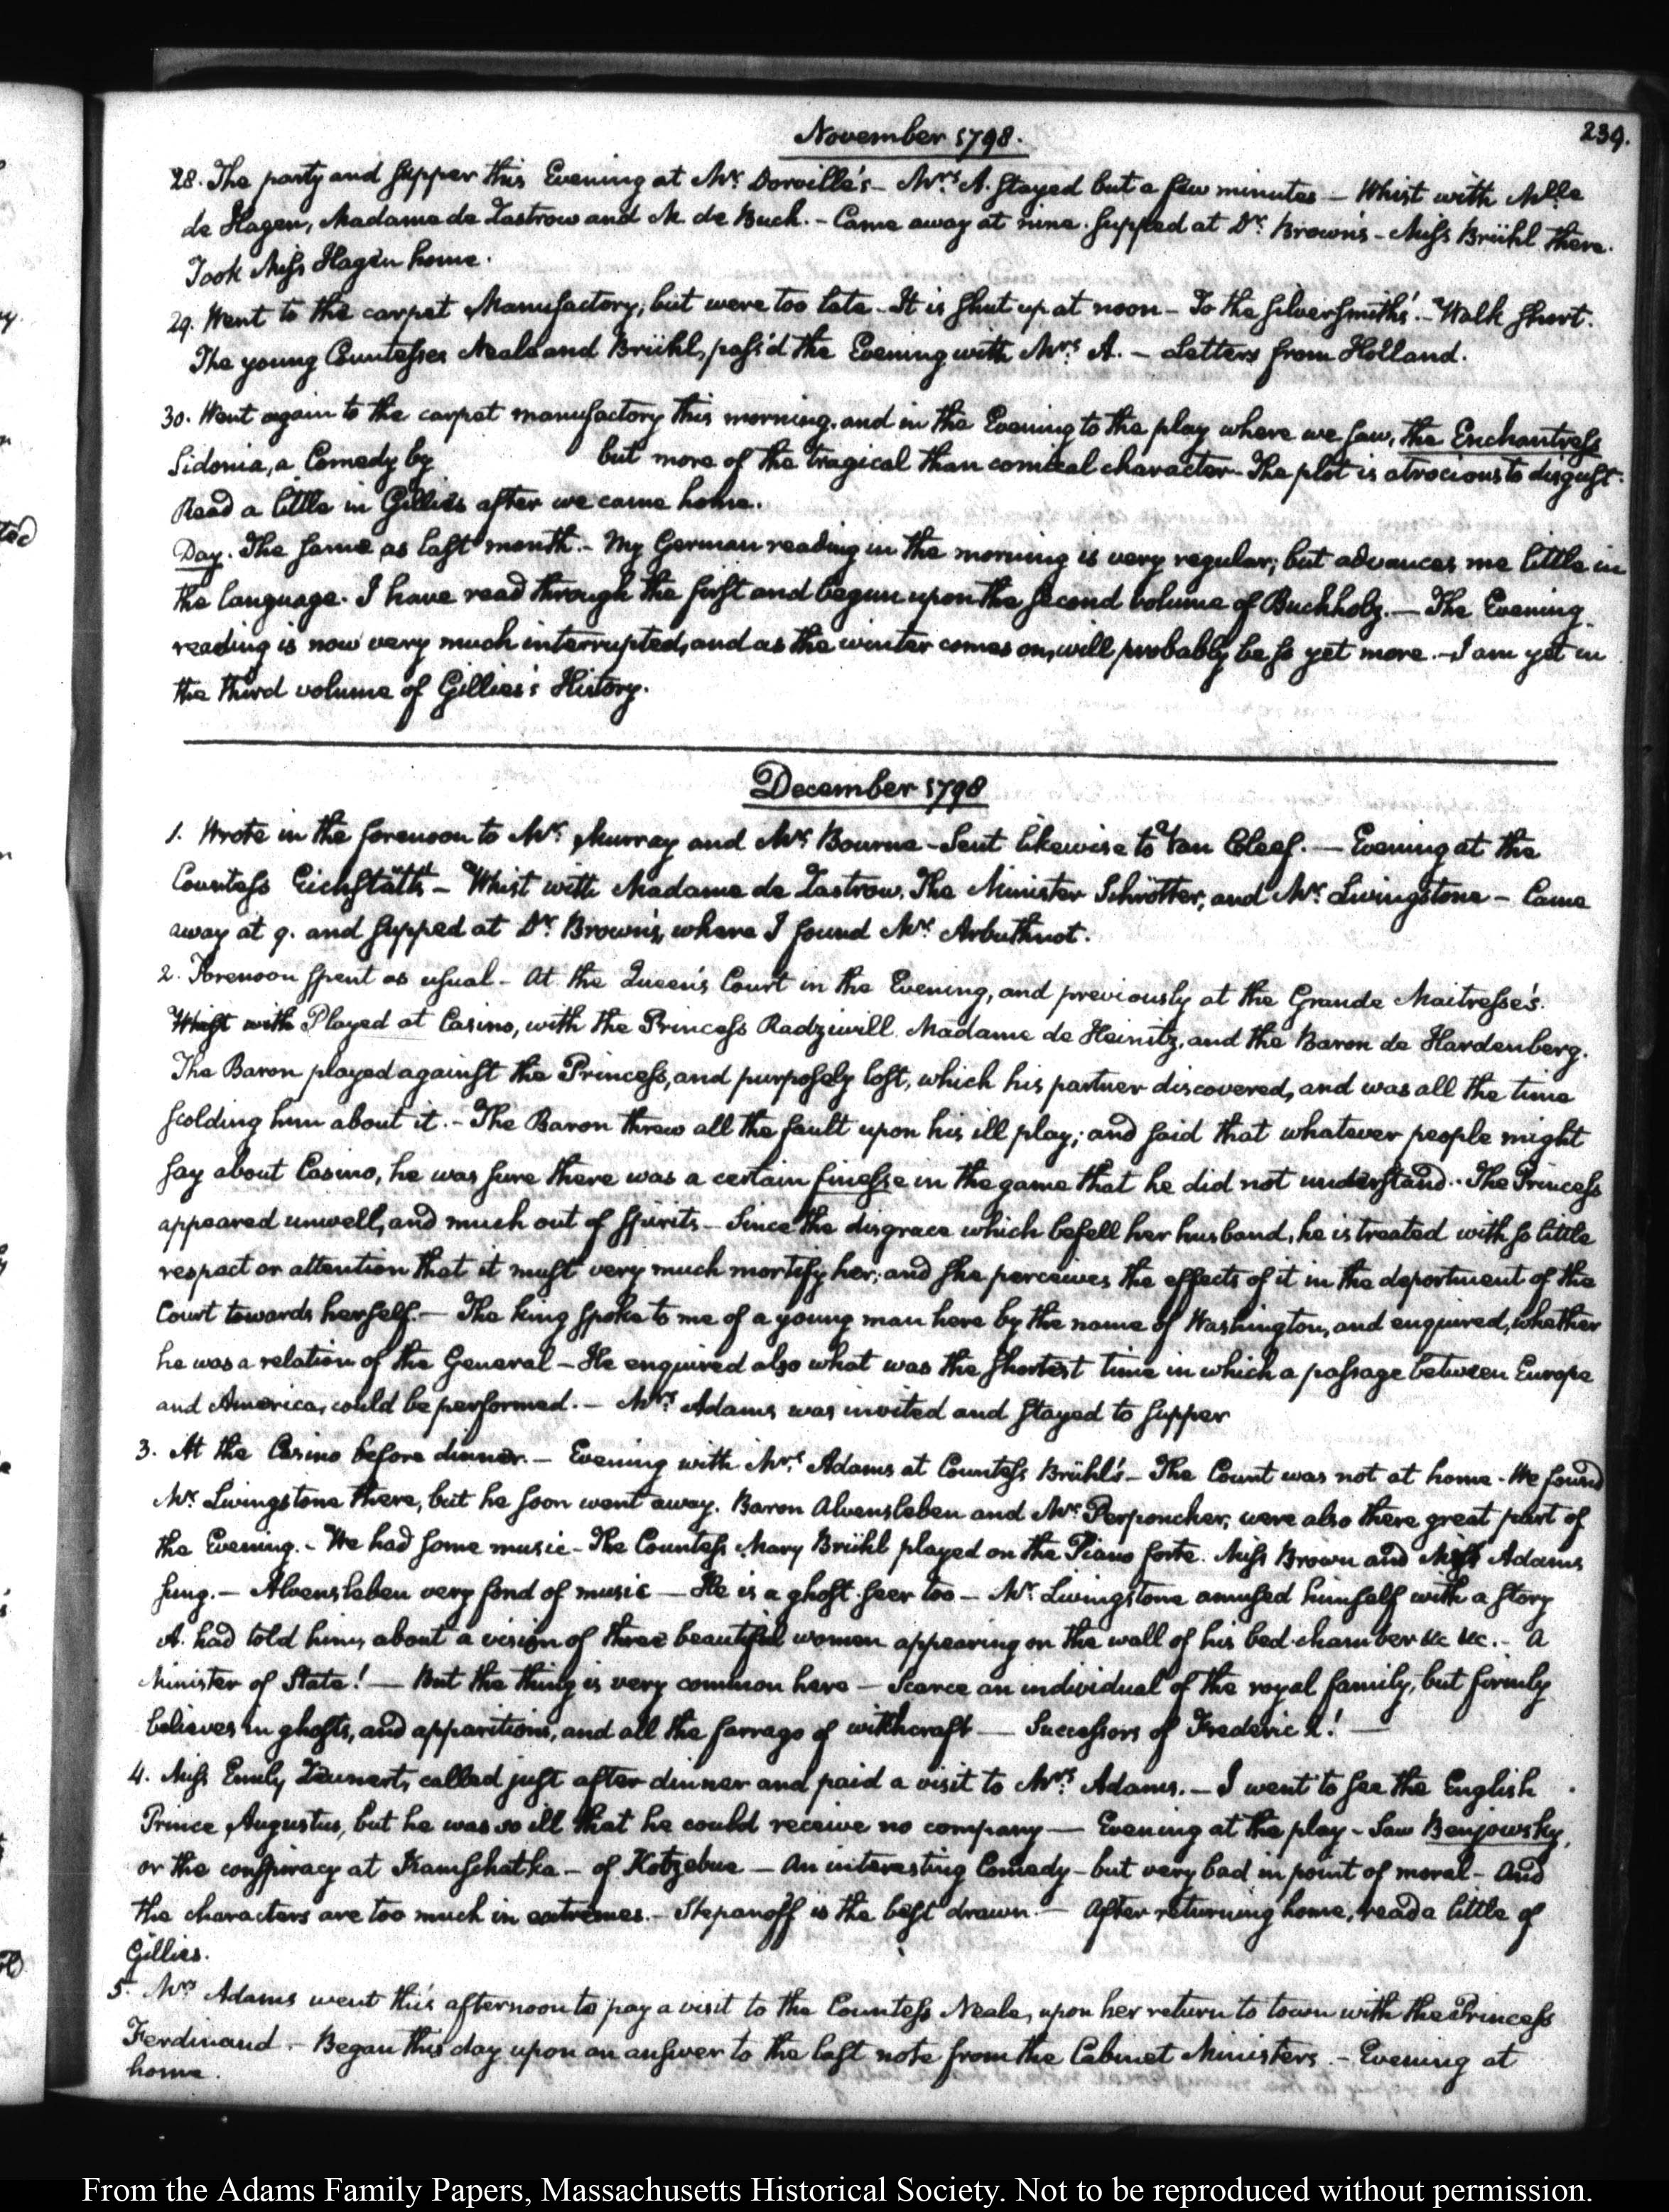 239.
November 1798.
28. The party and supper this Evening at Mr. Dorville's – Mrs. A. stayed but a few minutes – Whist with Mlle
de Hagen, Madame de Zastrow and M. de Buch. – Came away at nine. supped at Dr. Brown's – Miss Brühl there.
Took Miss Hagen home.
29. Went to the carpet Manufactory, but were too late – It is shut up at noon – To the silversmith's. – Walk short.
The young Countesses Neale and Brühl, pass'd the Evening with Mrs. A. – Letters from Holland.
30. Went again to the carpet manufactory this morning, and in the Evening to the play where we saw, the Enchantress
Sidonia, a Comedy by but more of the tragical than comical character – The plot is atrocious to disgust.
Read a little in Gillies after we came home.
Day. The same as last month. – My German reading in the morning is very regular; but advances me little in
the language. I have read through the first and begun upon the second volume of Buchholz. – The Evening
reading is now very much interrupted, and as the winter comes on, will probably be so yet more. – I am yet in
the third volume of Gillies's History.
December 1798
1. Wrote in the forenoon to Mr. Murray and Mr. Bourne – Sent likewise to Van Cleef. – Evening at the
Countess Eichstätt's – Whist with Madame de Zastrow, The Minister Schrötter, and Mr. Livingstone – Came
away at 9. and supped at Dr. Brown's, where I found Mr. Arbuthnot.
2. Forenoon spent as usual – At the Queen's Court in the Evening, and previously at the Grande Maitresse's.
Whist with Played at Casino, with the Princess Radziwill Madame de Heinitz, and the Baron de Hardenberg.
The Baron played against the Princess, and purposely lost, which his partner discovered, and was all the time
scolding him about it. – The Baron threw all the fault upon his ill play; and said that whatever people might
say about Casino, he was sure there was a certain finesse in the game that he did not understand. – The Princess
appeared unwell, and much out of spirits – Since the disgrace which befell her husband, he is treated with so little
respect or attention that it must very much mortify her; and she perceives the effects of it in the deportment of the
Court towards herself. – The king spoke to me of a young man here by the name of Washington, and enquired, whether
he was a relation of the General – He enquired also what was the shortest time in which a passage between Europe
and America, could be performed. – Mrs. Adams was invited and stayed to supper
3. At the Casino before dinner. – Evening with Mrs. Adams at Countess Brühl's – The Count was not at home. We found
Mr. Livingstone there, but he soon went away. Baron Alvensleben and Mr. Perponcher, were also there great part of
the Evening. – We had some music – The Countess Mary Brühl played on the Piano forte. Miss Brown and Mrs Adams
sung. – Alvensleben very fond of music – He is a ghost-seer too – Mr. Livingstone amused himself with a story
A. had told him, about a vision of three beautiful women appearing on the wall of his bed-chamber &c &c. – A
Minister of State! – But the thing is very common here – Scarce an individual of the royal family, but firmly
believes in ghosts, and apparitions, and all the farrago of witchcraft – Successors of Frederic 2! –
4. Miss Emily called just after dinner and paid a visit to Mrs. Adams. – I went to see the English
Prince Augustus, but he was so ill that he could receive no company – Evening at the play – Saw Benjowsky,
or the conspiracy at Kamschatka – of Kotzebue – An interesting Comedy – but very bad in point of moral – And
the characters are too much in extremes. – Stepanoff is the best drawn. – After returning home, read a little of
Gillies.
5. Mrs Adams went this afternoon to pay a visit to the Countess Neale, upon her return to town with the Princess
Ferdinand. – Began this day upon an answer to the last note from the Cabinet Ministers. – Evening at
home.
From the Adams Family Papers, Massachusetts Historical Society. Not to be reproduced without permission.